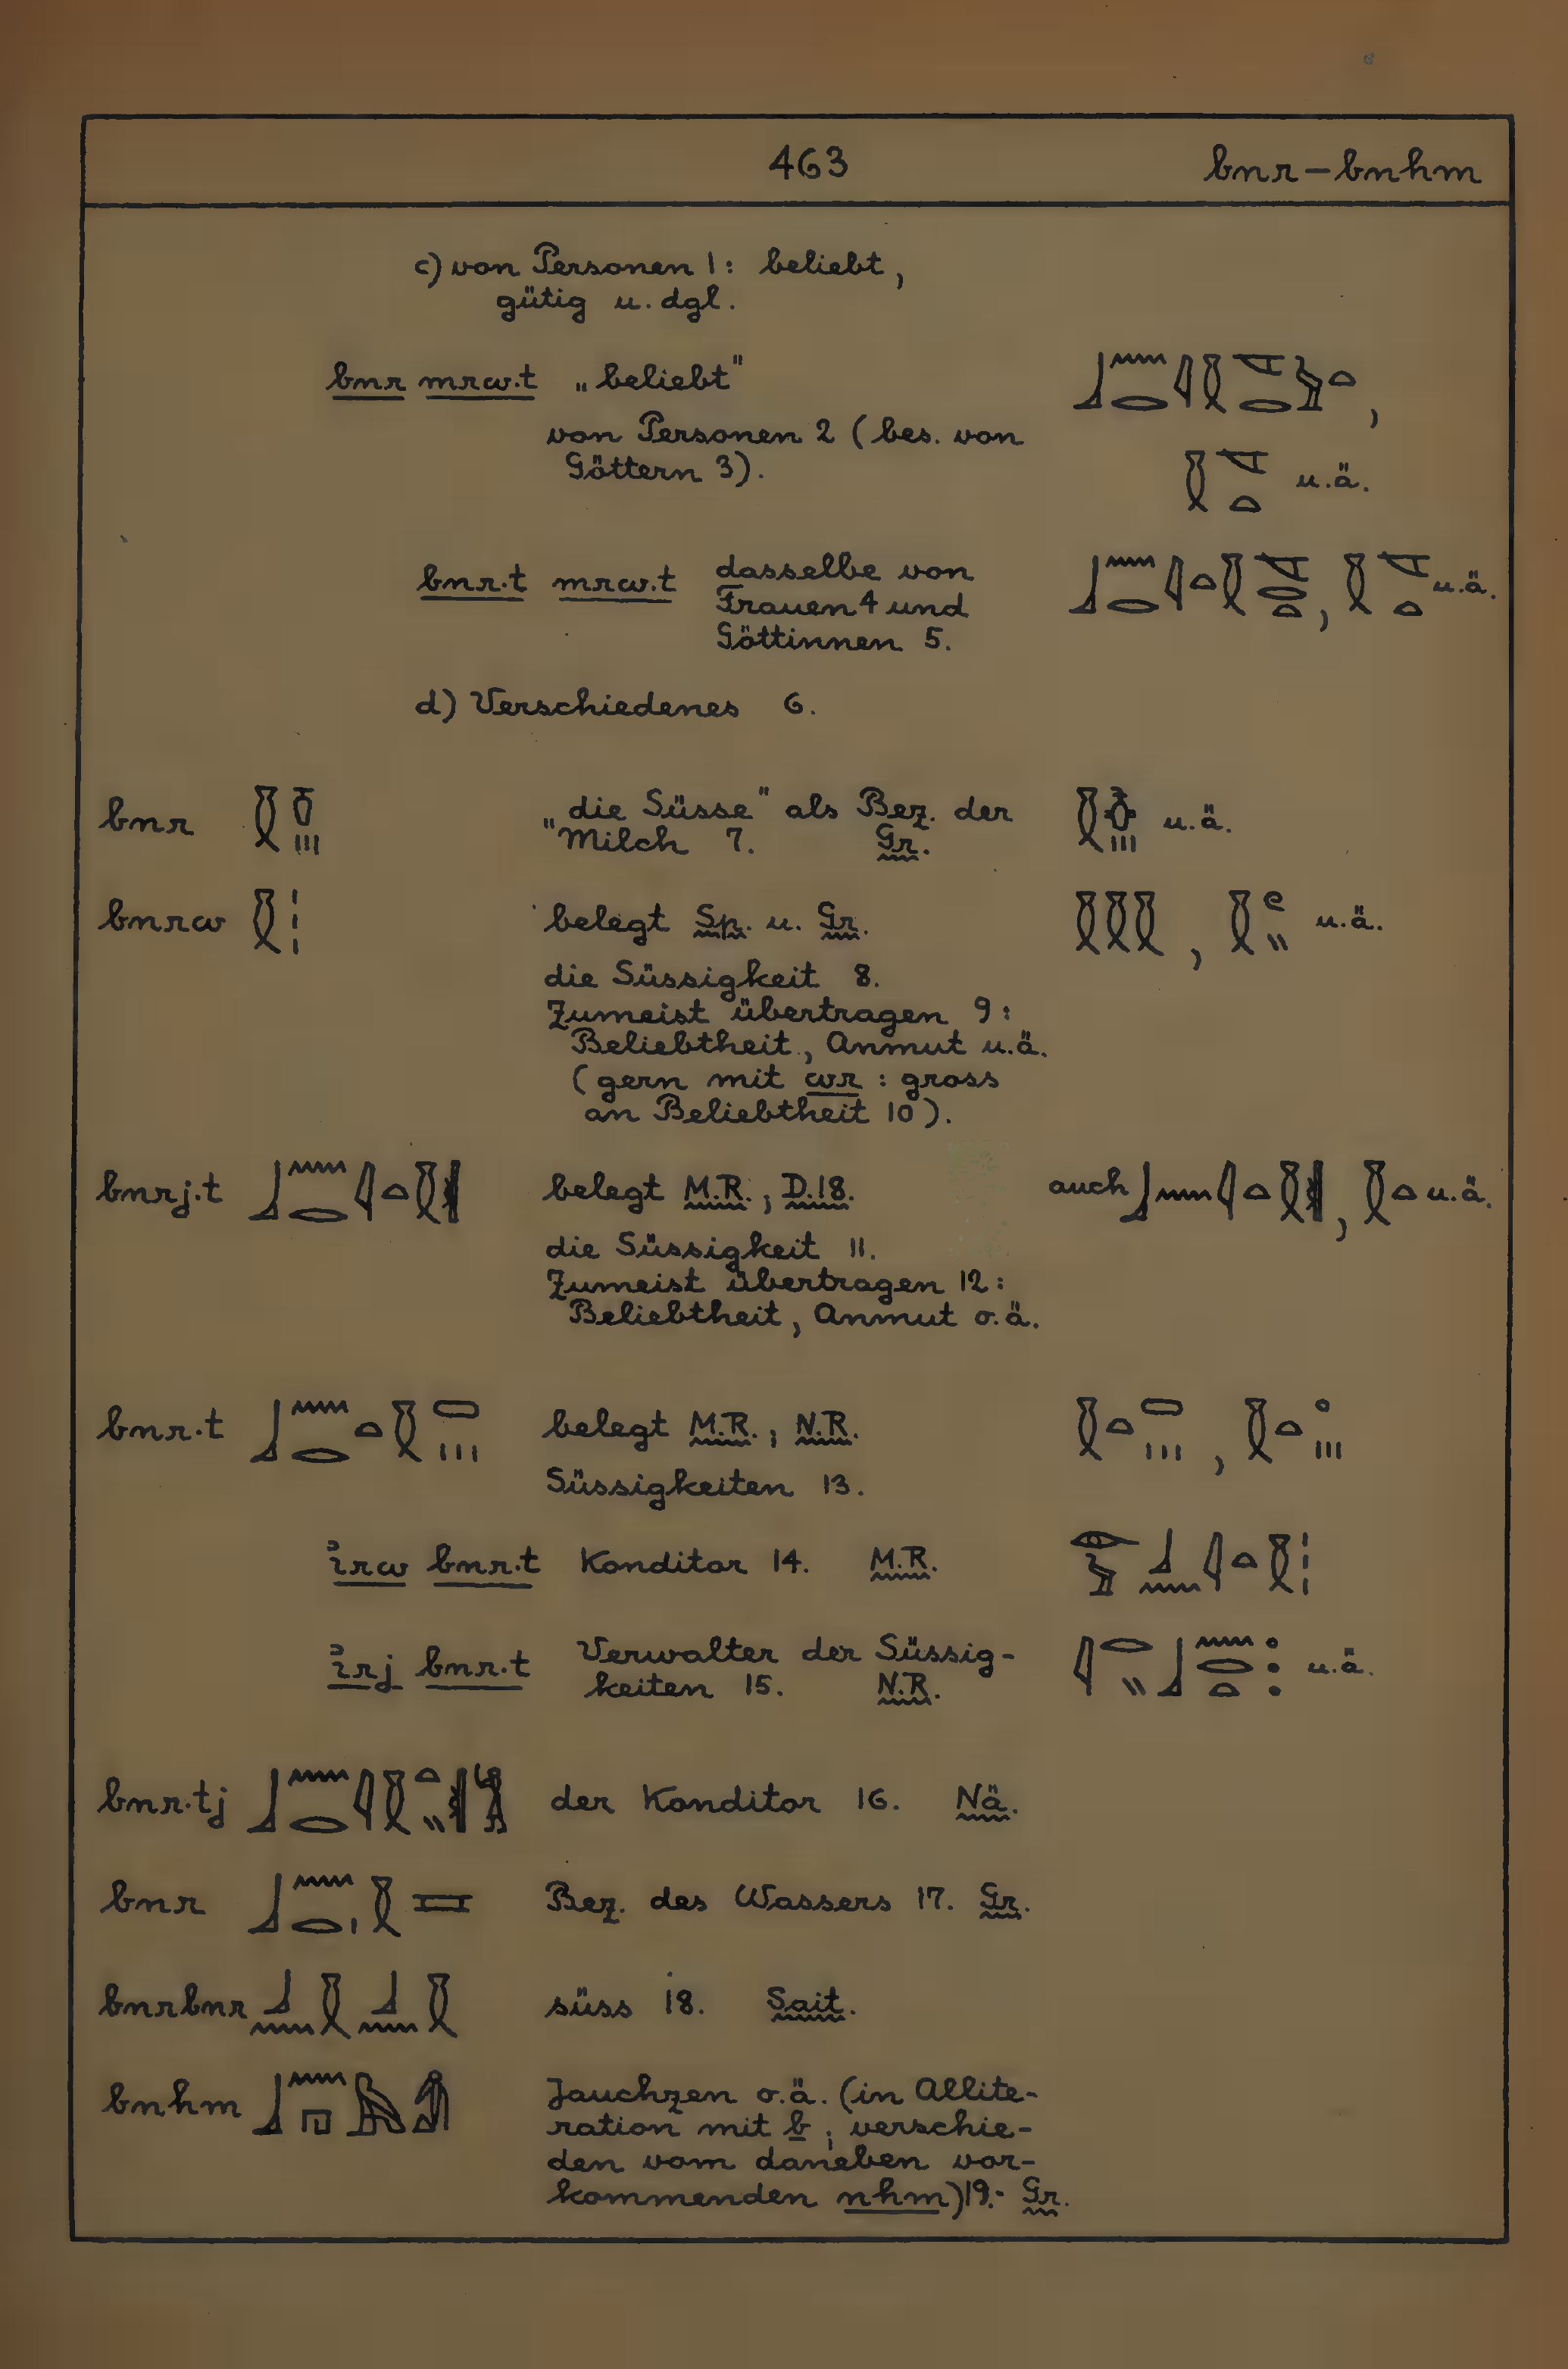 463 bnr – bnhm
c) von Personen 1: beliebt,
gütig u. dgl.
bnr mrw.t „beliebt"
von Personen 2 (bes. von
Göttern 3).
u.ä.
bnr.t mrw.t dasselbe von
Frauen 4 und
Göttinnen 5.
u.ä.
d) Verschiedenes 6.
bnr „die Süsse" als Bez. der
Milch 7. Gr.
u.ä.
bnrw belegt Sp. u. Gr.
u.ä.
die Süssigkeit 8.
Zumeist übertragen 9:
Beliebtheit, Anmut u.ä.
(gern mit wr : gross
an Beliebtheit 10).
bnrj.t belegt M.R.; D.18. auch u.ä.
die Süssigkeit 11.
Zumeist übertragen 12:
Beliebtheit, Anmut o.ä.
bnr.t belegt M.R.; N.R.
Süssigkeiten 13.
ỉrw bnr.t Konditor 14. M.R.
ỉrj bnr.t Verwalter der Süssig-
keiten 15. N.R.
u.ä.
bnr.tj der Konditor 16. Nä.
bnr Bez. des Wassers 17. Gr.
bnrbnr süss 18. Sait.
bnhm Jauchzen o.ä. (in Allite-
ration mit b; verschie-
den vom daneben vor-
kommenden nhm) 19. Gr.